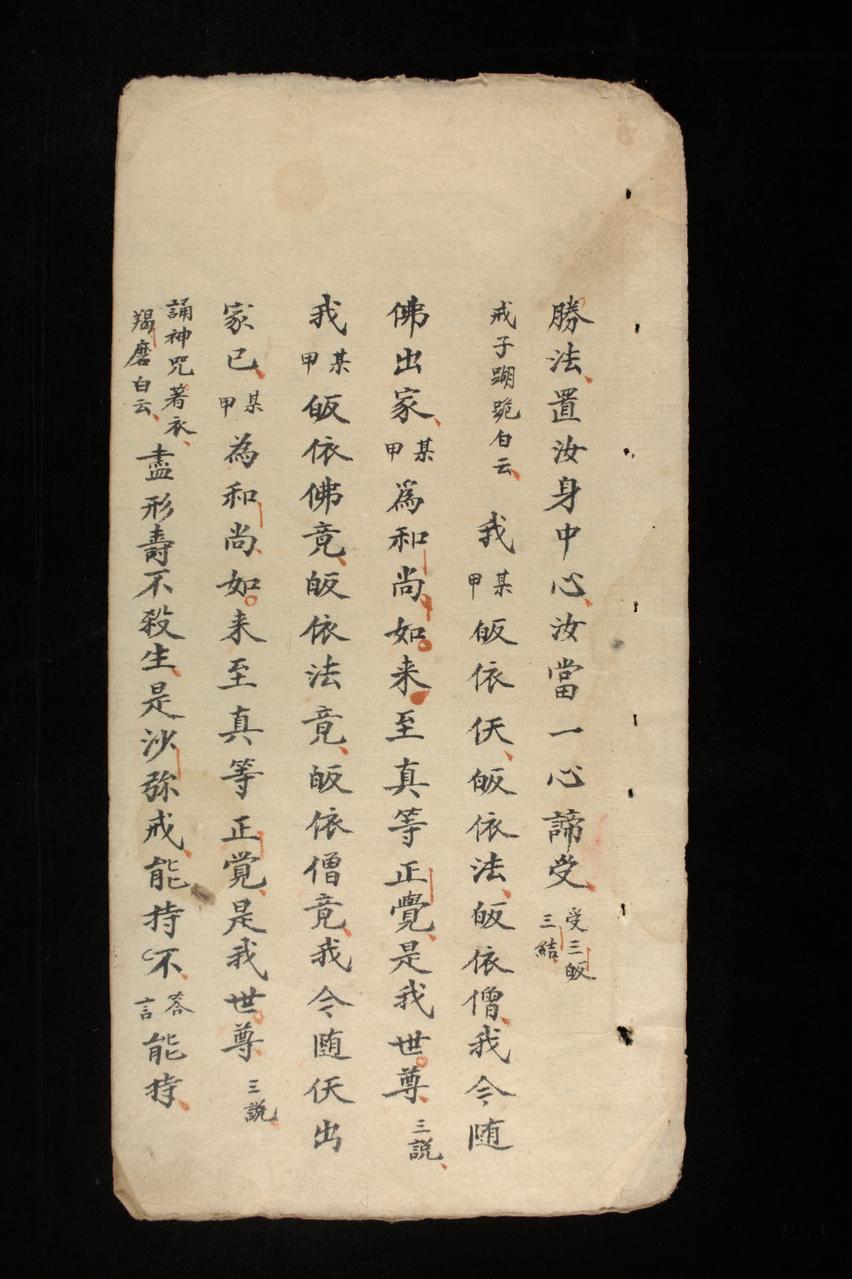 勝法置汝身中心汝當一心諦受受三皈三結
戒子蹦跪白云我某甲皈依仸皈依法皈依僧我今随
佛出家某甲爲和尚如来至真等正覺是我世尊三説
我某甲皈依佛竟皈依法竟皈依僧竟我今随仸出
家已某甲為和尚如来至真等正覚是我世尊三説
誦神咒著衣羯磨白云盡形壽不殺生是沙弥戒能持不答言能持